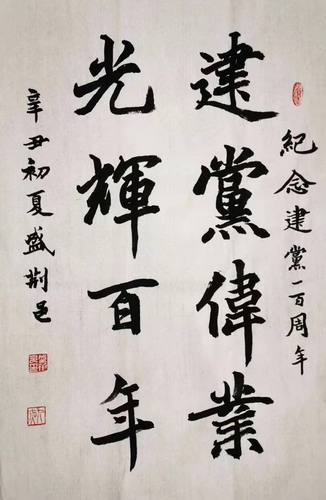 紀念建黨一百周年
建黨偉業
光輝百年
辛丑初夏盛荆邑